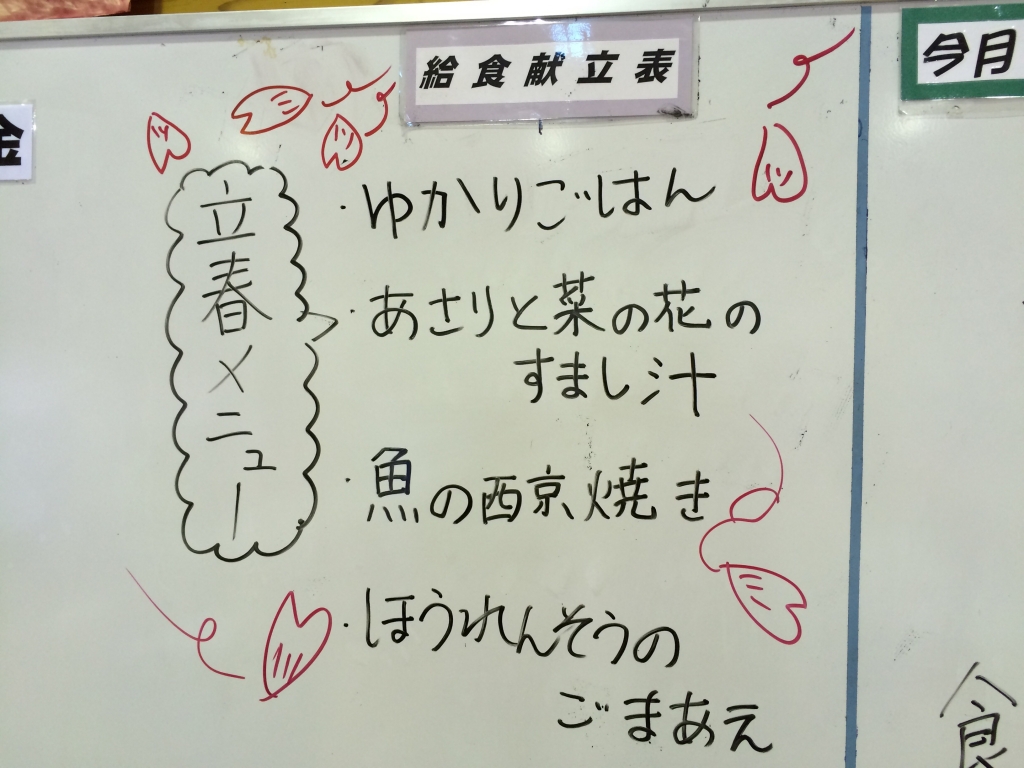 給食献立表
今月
金
立春メニュー
・ゆかりごはん
・あさりと菜の花の
すまし汁
・魚の西京焼き
・ほうれんそうの
ごまあえ
食